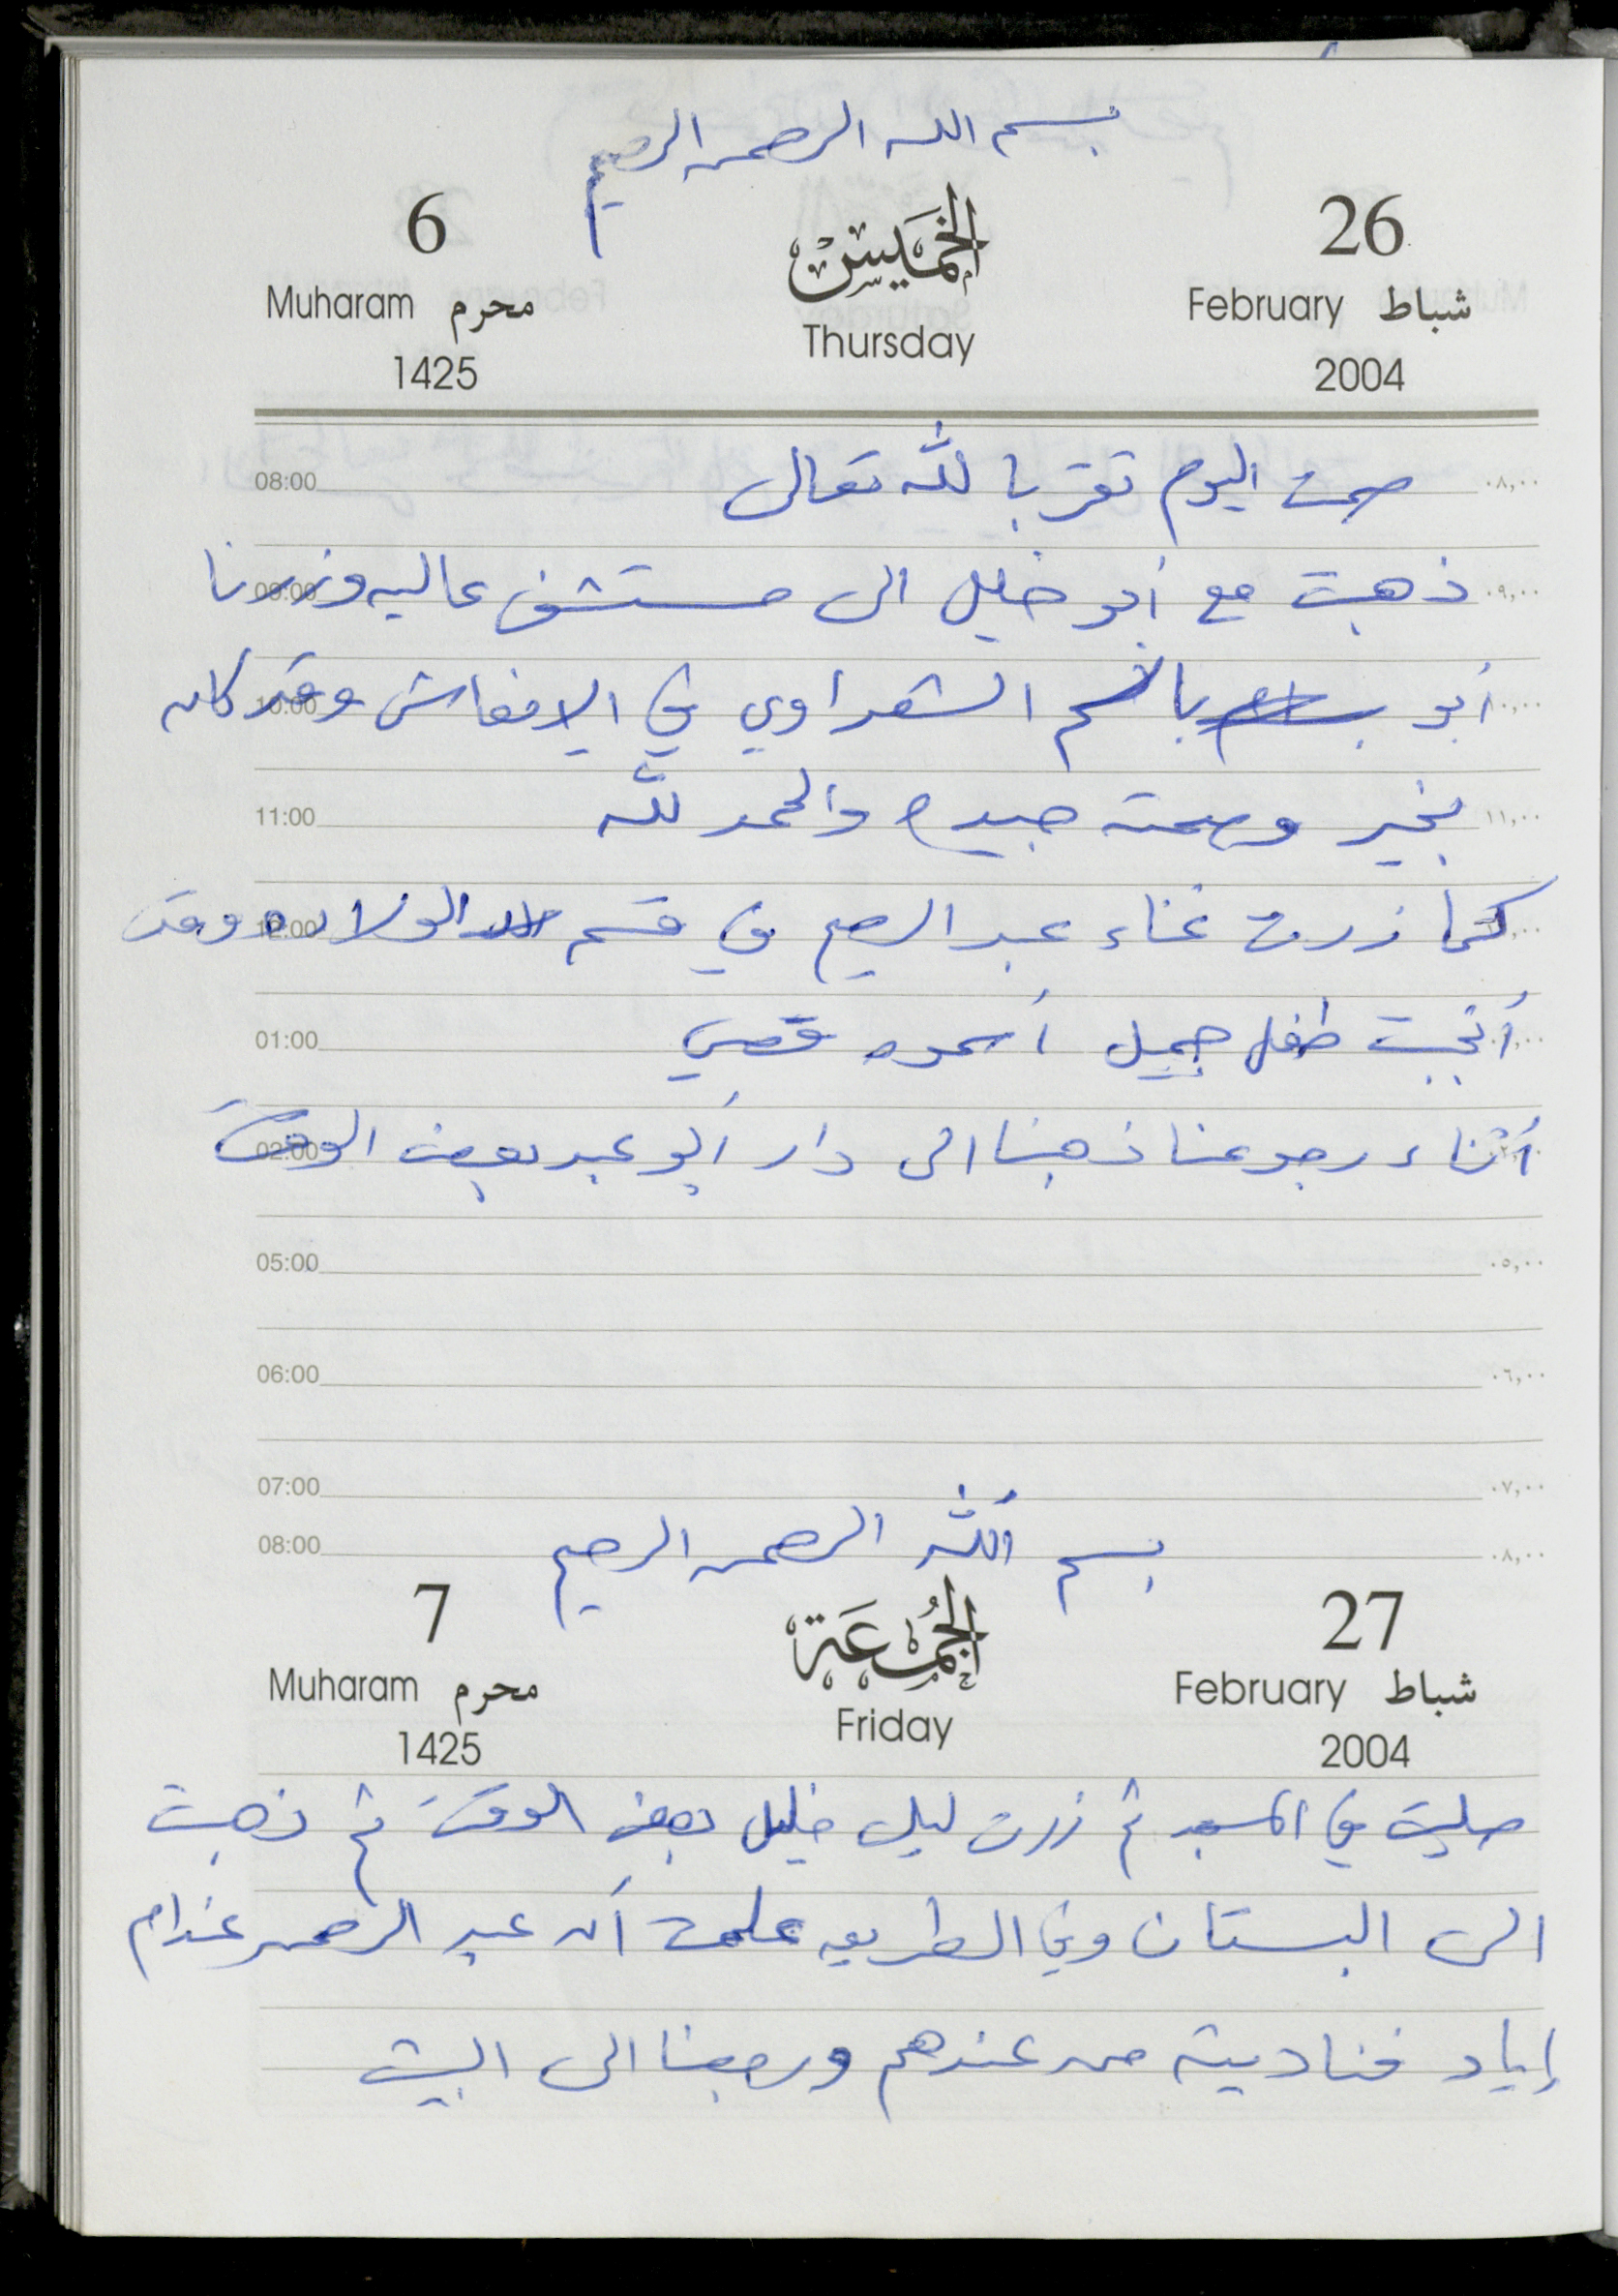 بسم الله الرحمن الرحيم
6 الخميس 26
Muharam محرم Thursday February شباط
1425 2004
08:00 صمت اليوم تقربا لله تعالى ٠٨,٠٠
09:00 ذهبت مع أبو خليل الى مستشفى عاليه وزرنا ٠٩,٠٠
10:00 أبو باسم الشعراوي في الإنعاش وقد كان ١٠,٠٠
11:00 بخير وصحته جيده والحمد لله ١١,٠٠
12:00 كما زرت غناء عبد الرحيم في قسم الولاده وقد
01:00 أنجبت طفل جميل أسموه قصي
02:00 أثناء رجوعنا ذهبنا الى دار أبو عبد بعض الوقت
05:00 ٠٥,٠٠
06:00 ٠٦,٠٠
07:00 ٠٧,٠٠
08:00 بسم الله الرحمن الرحيم ٠٨,٠٠
7 الجُمُعَة 27
Muharam محرم Friday February شباط
1425 2004
صليت في المسجد ثم زرت ليلى خليل بعض الوقت ثم ذهبت
الى البستان وفي الطريق علمت أن عبد الرحمن عند ام
إياد فناديته من عندهم ورجعنا الى البيت